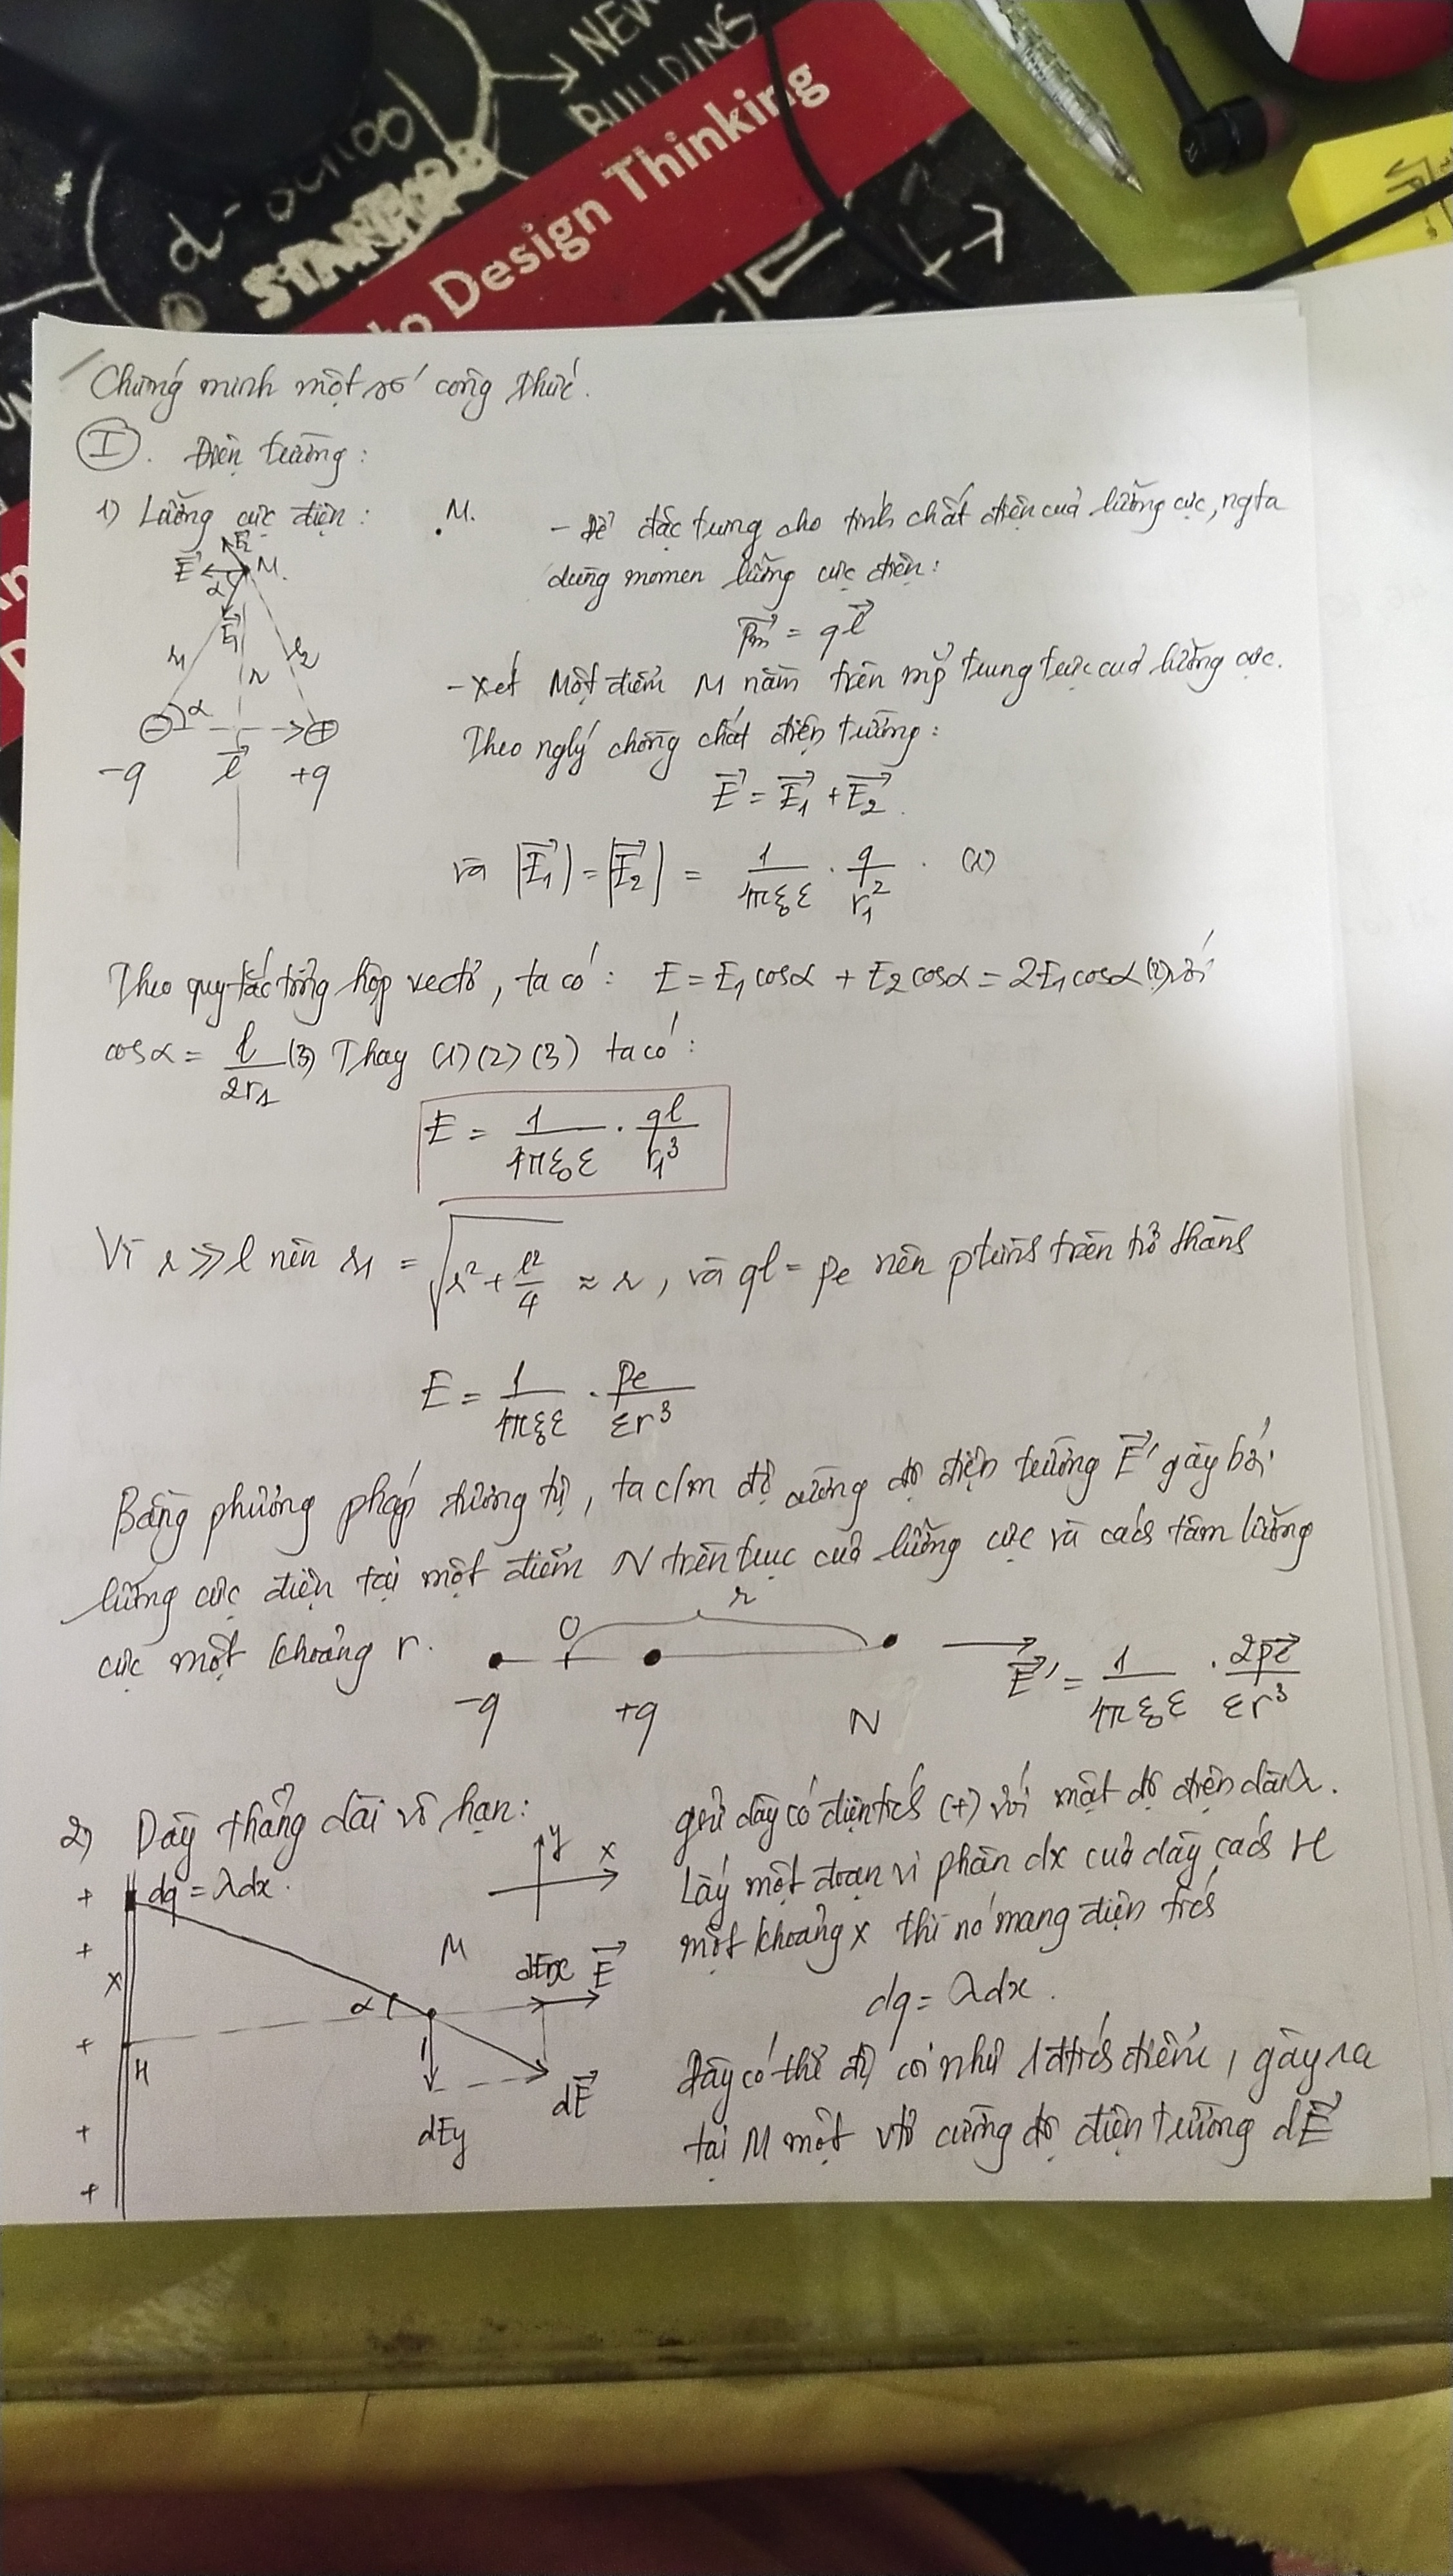 NEW
BUILDING
d-school
STANFORD
to Design Thinking
Chứng minh một số công thức.
I. Điện trường:
1) Lưỡng cực điện:
M.
E₂
E⃗
M.
α
E⃗₁
r₁
r
r₂
α
-q
l⃗
+q
- Để đặc trưng cho tính chất điện của lưỡng cực, ngta
dùng momen lưỡng cực điện:
p⃗m = q l⃗
- Xét Một điểm M nằm trên mp trung trực của lưỡng cực.
Theo nglý chồng chất điện trường:
E⃗ = E⃗₁ + E⃗₂.
và |E⃗₁| = |E⃗₂| = 1/4πε₀ε · q/r₁². (1)
Theo quy tắc tổng hợp vectơ, ta có: E = E₁cosα + E₂cosα = 2E₁cosα (2) với
cosα = l/2r₁ (3) Thay (1) (2) (3) ta có:
E = 1/4πε₀ε · ql/r₁³
Vì r ≫ l nên r₁ = √(r² + l²/4) ≈ r, và ql = pe nên ptrình trên trở thành
E = 1/4πε₀ε · pe/εr³
Bằng phương pháp tương tự, ta c/m độ cường độ điện trường E⃗' gây bởi
lưỡng cực điện tại một điểm N trên trục của lưỡng cực và cách tâm lưỡng
cực một khoảng r.
O
r
-q
+q
N
E⃗' = 1/4πε₀ε · 2p⃗e/εr³
2) Dây thẳng dài vô hạn:
y
x
dq = λdx.
+
+
x
+
H
+
+
α
M
dEx
E⃗
dE⃗
dEy
giử dây có điện tích (+) với mật độ điện dài λ.
Lấy một đoạn vi phân dx của dây cách H
một khoảng x thì nó mang điện tích
dq = λdx.
Đây có thể đc coi như 1 đtích điểm, gây ra
tại M một vtơ cường độ điện trường dE⃗